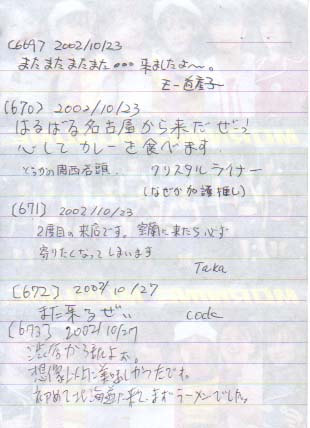 (669) 2002/10/23
またまたまたまた・・・来ましたよ〜。
(670) 2002/10/23
はるばる名古屋から来たぜっ!
心してカレーを食べます.
クリスタルライナー
(なぜか加護推し)
(671) 2002/10/23
2度目の来店です。室蘭に来たら必ず
寄りたくなってしまいます
Taka
(672) 2002/10/27
また来るぜぃ
code
(673) 2002/10/27
渋谷から来たよぉ。
想像以上に美味しかったでーす。
初めて北海道に来て、まずラーメンでした。